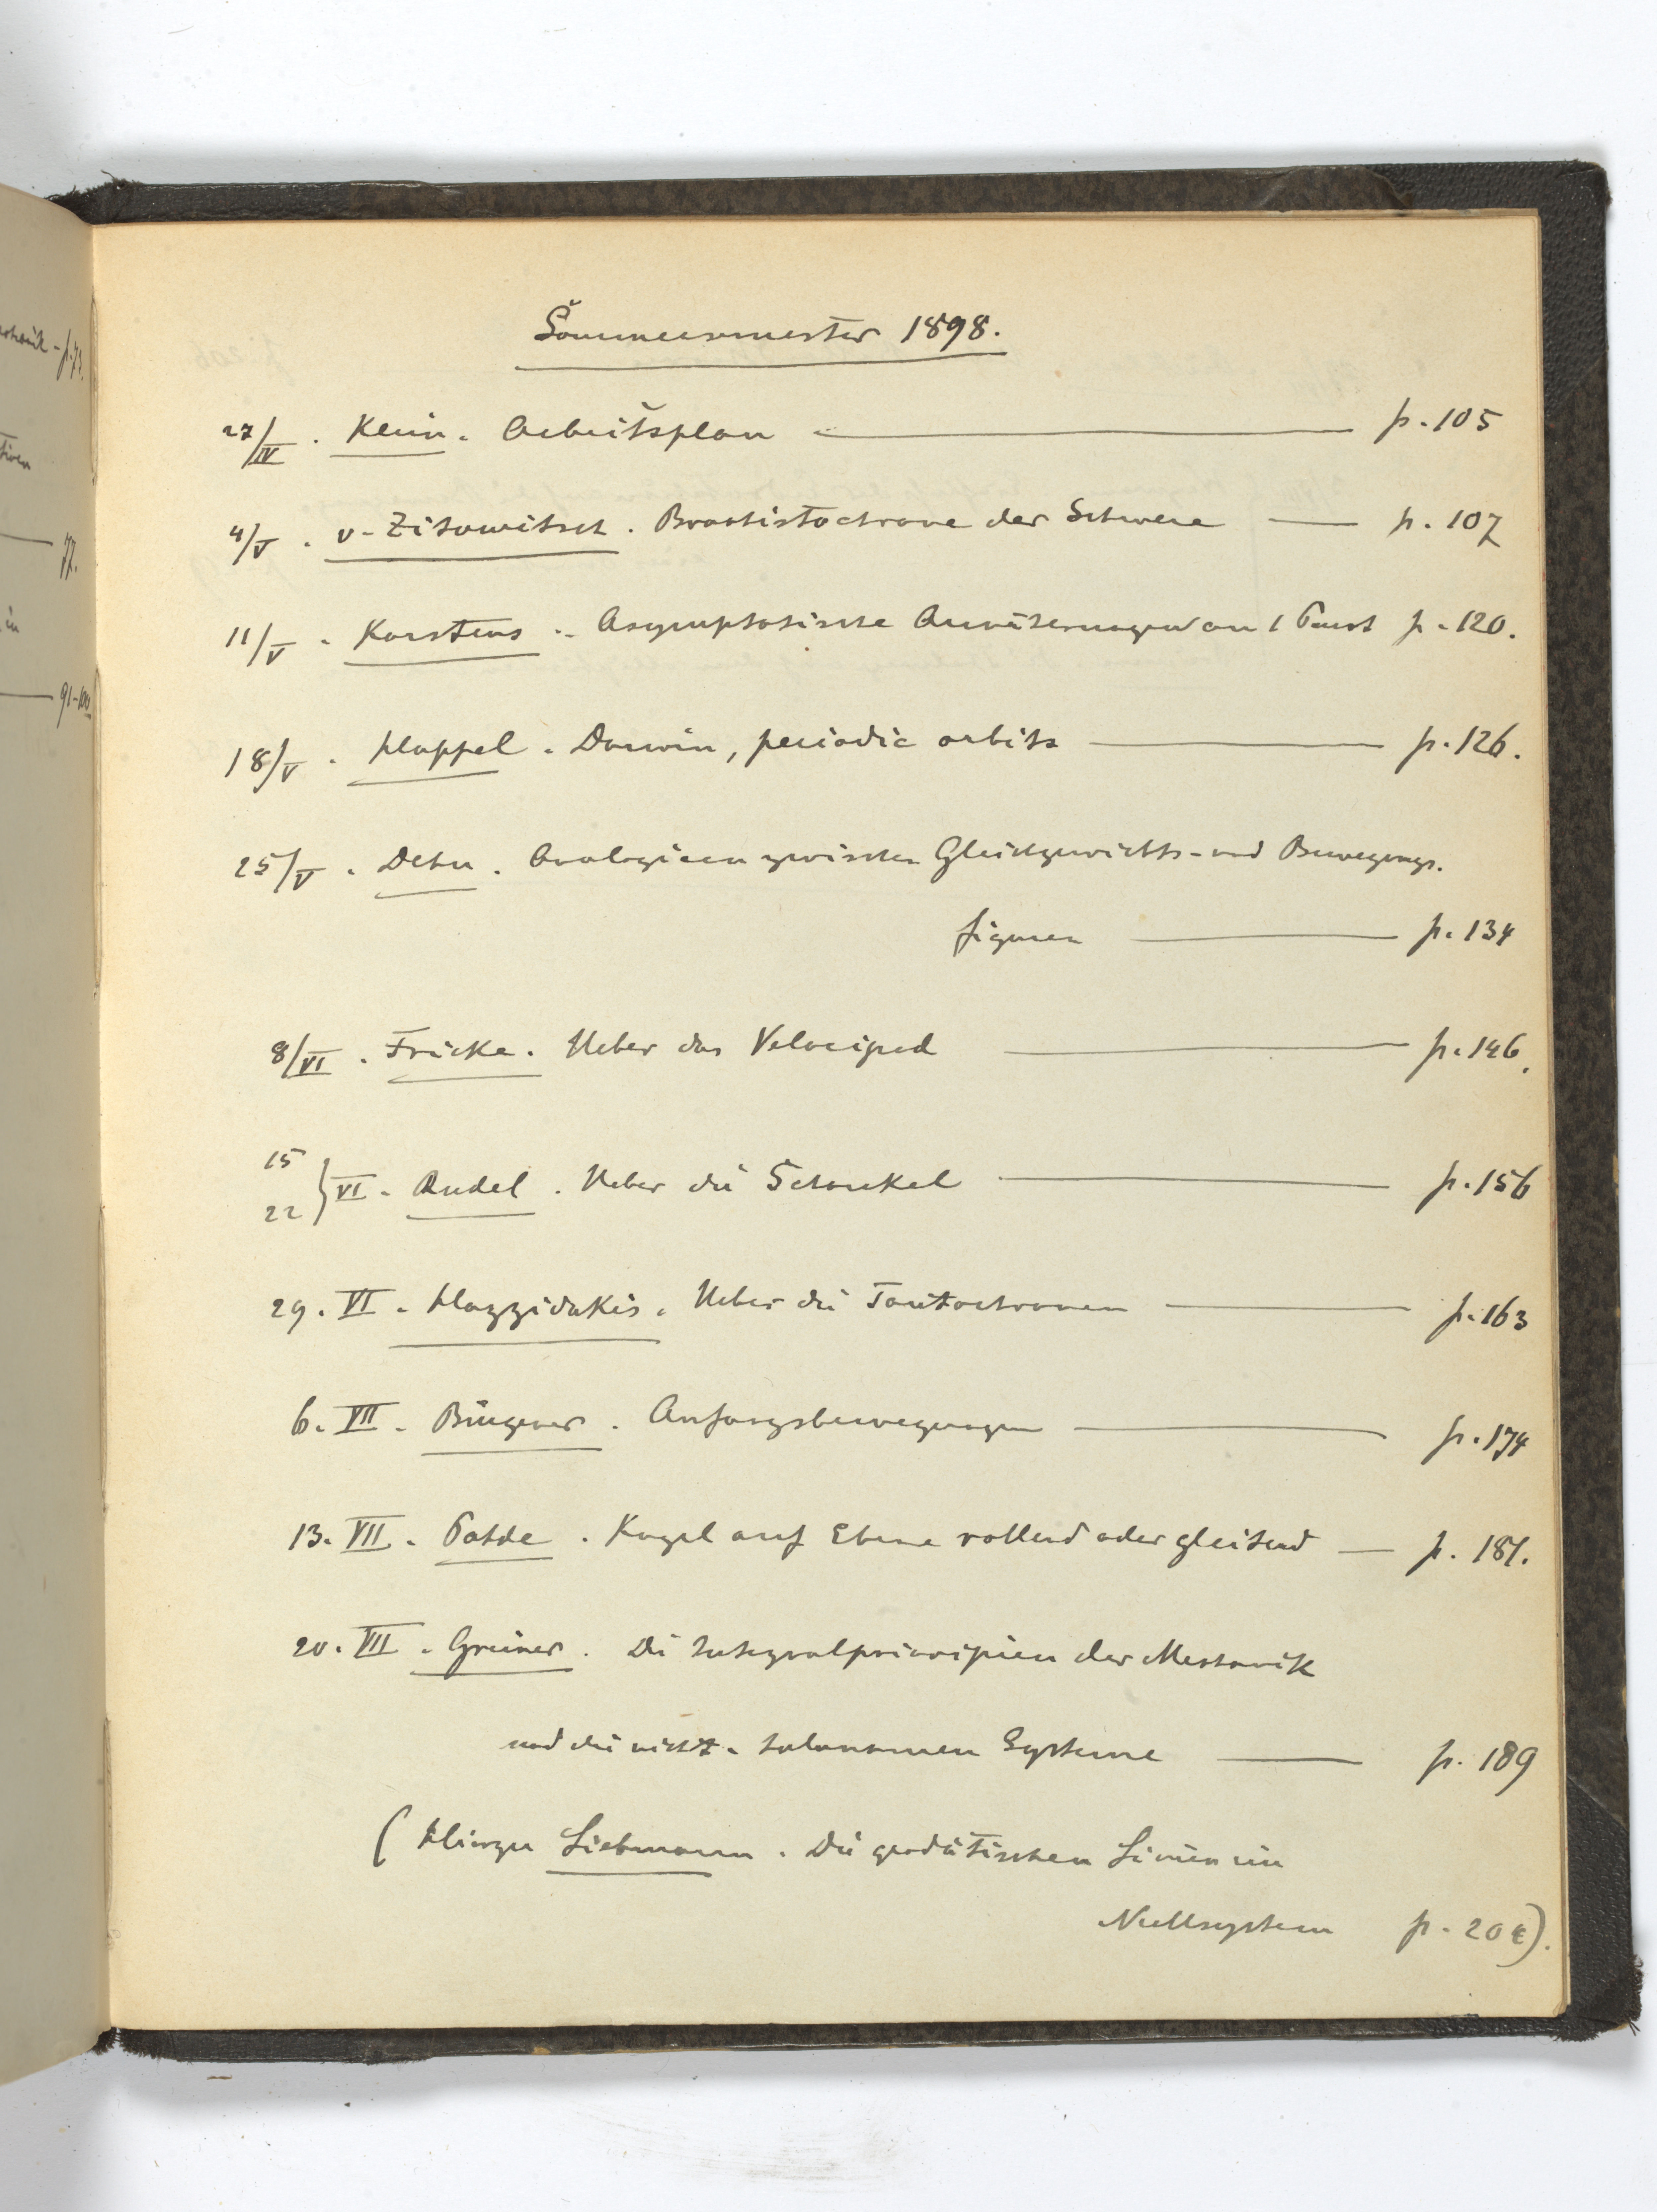 -
77.
in
91-100
Sommersemester 1898.
27/IV. Klein. Arbeitsplan — p. 105
4/V. v. Zitowitsch. Brachistochrone der Schwere — p. 107
11/V. Karstens. Asymptotische Annäherungen an 1 Punkt p. 120.
18/V. Happel. Darwin, periodic orbits — p. 126.
25/V. Dehn. Analogieen zwischen Gleichgewichts- und Bewegungs-
figuren — p. 134
8/VI. Fricke. Ueber das Velociped — p. 146.
15
22 } VI. Rudel. Ueber die Schaukel — p. 156
29. VI. Hazzidakis. Ueber die Tautochronen — p. 163
6. VII. Büngener. Anfangsbewegungen — p. 174
13. VII. Pohde. Kugel auf Ebene rollend oder gleitend — p. 181.
20. VII. Greiner. Die Integralprincipien der Mechanik
und die nicht-holonomen Systeme — p. 189
(Hierzu Liebmann. Die geodätischen Linien im
Nullsystem p. 204).